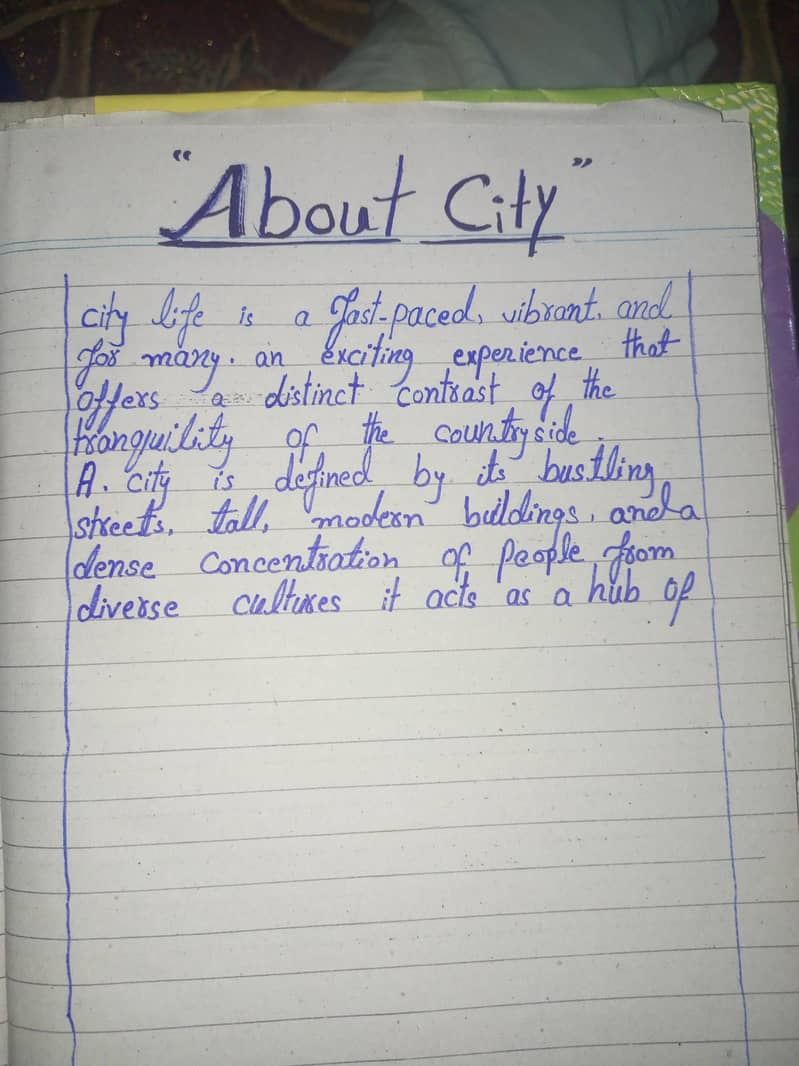 "About City"
city life is a fast-paced, vibrant, and
for many. an exciting experience that
offers a distinct contrast of the
tranquility of the countryside.
A. city is defined by its bustling
streets, tall, modern buildings, and a
dense concentration of people from
diverse cultures it acts as a hub of